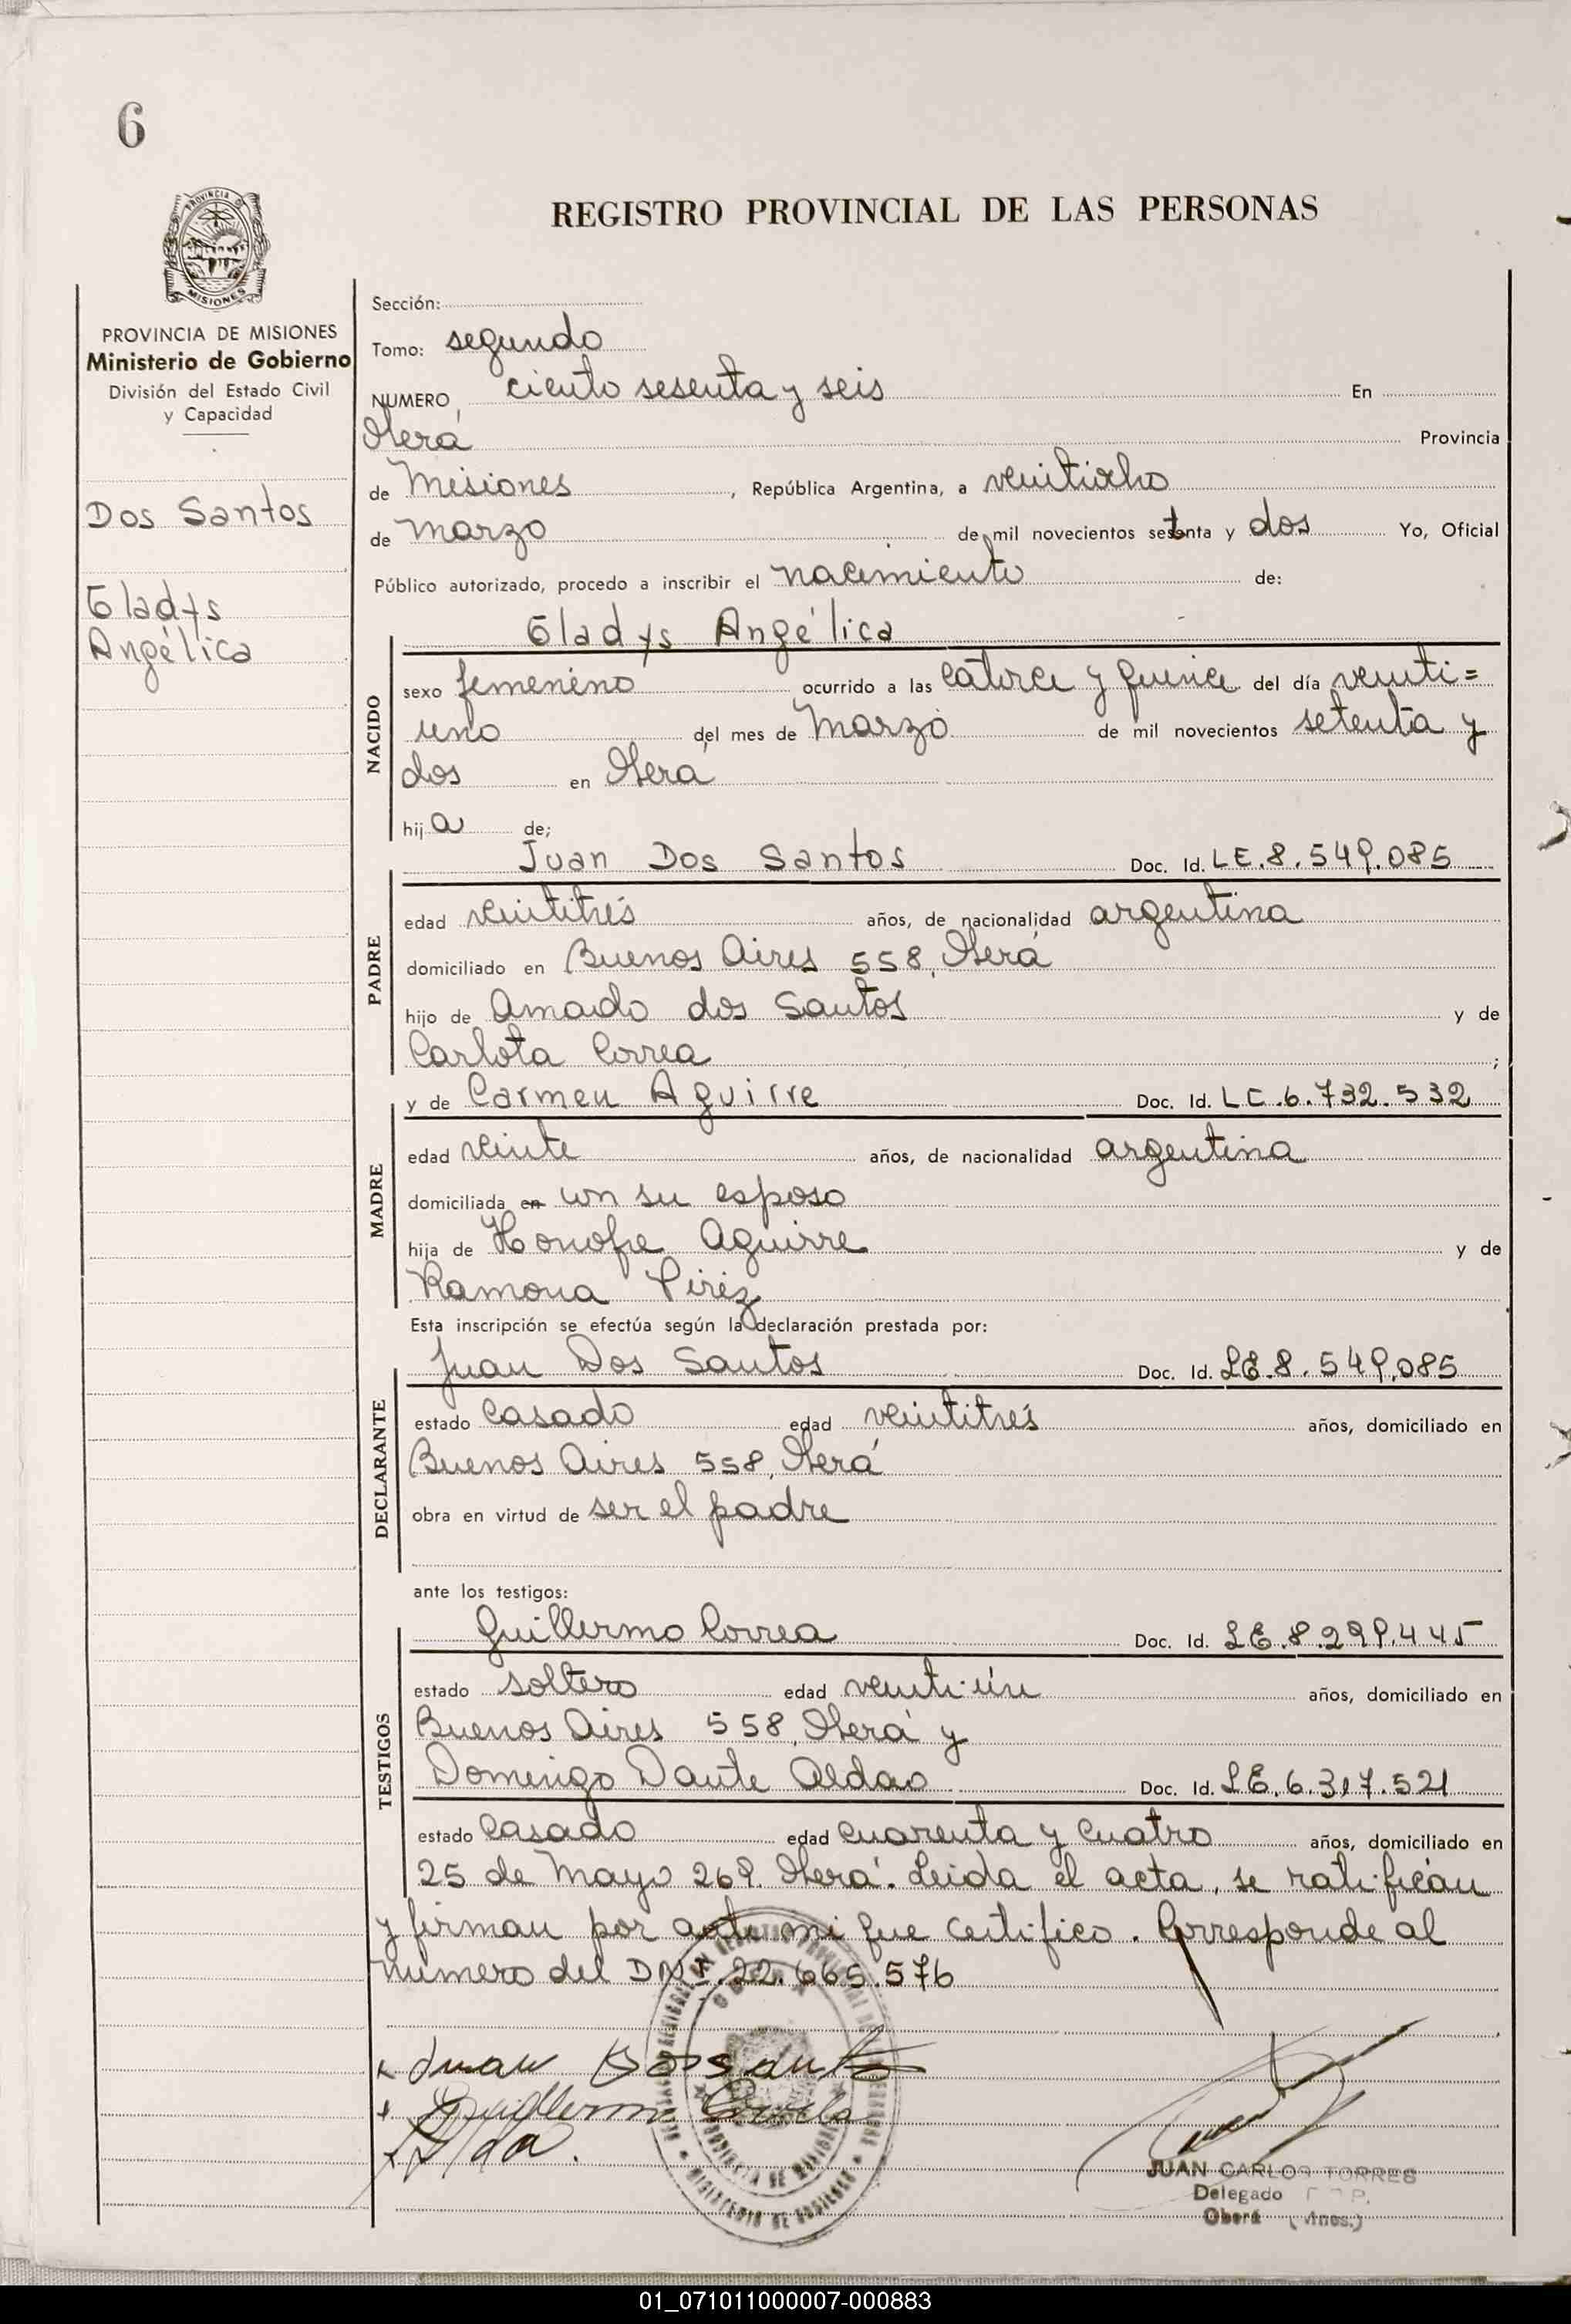 6
PROVINCIA DE MISIONES
Ministerio de Gobierno
División del Estado Civil
y Capacidad
Dos Santos
Gladys
Angélica
REGISTRO PROVINCIAL DE LAS PERSONAS
Sección:
Tomo: segundo
NUMERO ciento sesenta y seis En
Oberá Provincia
de Misiones, República Argentina, a veintiocho
de marzo de mil novecientos setenta y dos Yo, Oficial
Público autorizado, procedo a inscribir el nacimiento de:
Gladys Angélica
NACIDO
sexo femenino ocurrido a las catorce y quince del día veinti=
uno del mes de marzo de mil novecientos setenta y
dos en Oberá
hija de;
Juan Dos Santos Doc. Id. LE.8.549.085
PADRE
edad veintitrés años, de nacionalidad argentina
domiciliado en Buenos Aires 558, Oberá
hijo de Amado dos Santos y de
Carlota Correa ;
y de Carmen Aguirre Doc. Id. LC.6.732.532
MADRE
edad veinte años, de nacionalidad argentina
domiciliada en con su esposo
hija de Honofre Aguirre y de
Ramona Piriz
Esta inscripción se efectúa según la declaración prestada por:
Juan Dos Santos Doc. Id. LE.8.549.085
DECLARANTE
estado casado edad veintitrés años, domiciliado en
Buenos Aires 558, Oberá
obra en virtud de ser el padre
ante los testigos:
Guillermo Correa Doc. Id. LE.8.299.445
TESTIGOS
estado soltero edad veinti-ún años, domiciliado en
Buenos Aires 558, Oberá y
Domingo Dante Aldao Doc. Id. LE.6.317.521
estado casado edad cuarenta y cuatro años, domiciliado en
25 de Mayo 269. Oberá. Leida el acta, se ratifican
y firman por ante mi que certifico. Corresponde al
número del DNI.22.665.576
Juan Dos Santos
Guillermo Correa
JUAN CARLOS TORRES
Delegado
Oberá (Mnes.)
01_071011000007-000883